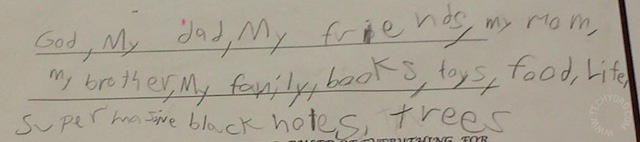 God, My dad, My friends, my mom,
my brother, My family, books, toys, food, Life,
Supermassive black holes, trees